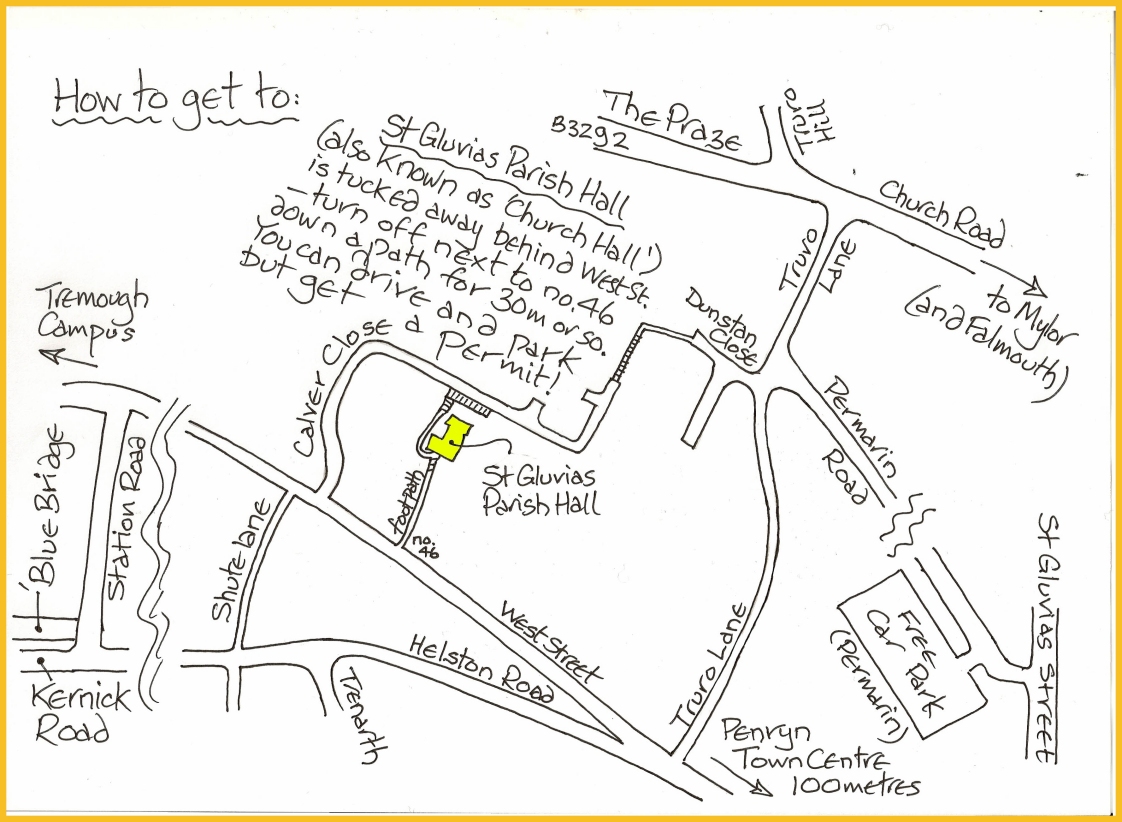 How to get to:
St Gluvias Parish Hall
(also known as 'Church Hall')
is tucked away behind West St.
– turn off next to no.46
down a path for 30m or so.
You can drive and park
but get a Permit!
The Praze
B3292
Truro
Hill
Church Road
to Mylor
(and Falmouth)
Truro
Lane
Dunstan
Close
Permarin
Road
Tremough
Campus
Calver Close
'Blue Bridge
Station Road
Shute Lane
footpath
no.
46
St Gluvias
Parish Hall
West Street
Helston Road
Trenarth
Truro Lane
Kernick
Road
FREE
Car Park
(Permarin)
St Gluvias Street
Penryn
Town Centre
100metres